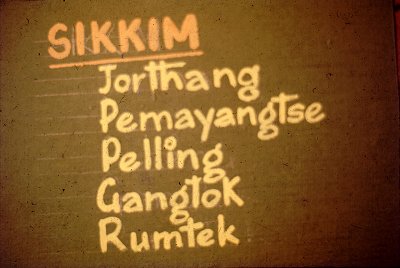 SIKKIM
Jorthang
Pemayangtse
Pelling
Gangtok
Rumtek